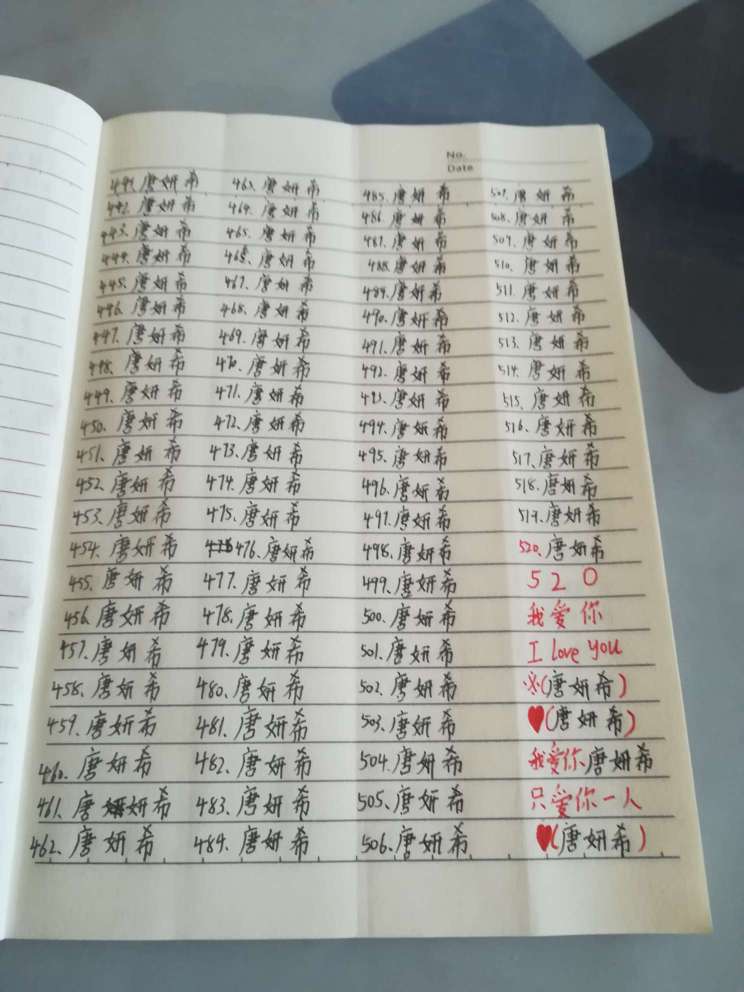 No.
Date
441.唐妍希
442.唐妍希
443.唐妍希
444.唐妍希
445.唐妍希
446.唐妍希
447.唐妍希
448.唐妍希
449.唐妍希
450.唐妍希
451.唐妍希
452.唐妍希
453.唐妍希
454.唐妍希
455.唐妍希
456.唐妍希
457.唐妍希
458.唐妍希
459.唐妍希
460.唐妍希
461.唐妍希
462.唐妍希
463.唐妍希
464.唐妍希
465.唐妍希
466.唐妍希
467.唐妍希
468.唐妍希
469.唐妍希
470.唐妍希
471.唐妍希
472.唐妍希
473.唐妍希
474.唐妍希
475.唐妍希
476.唐妍希
477.唐妍希
478.唐妍希
479.唐妍希
480.唐妍希
481.唐妍希
482.唐妍希
483.唐妍希
484.唐妍希
485.唐妍希
486.唐妍希
487.唐妍希
488.唐妍希
489.唐妍希
490.唐妍希
491.唐妍希
492.唐妍希
493.唐妍希
494.唐妍希
495.唐妍希
496.唐妍希
497.唐妍希
498.唐妍希
499.唐妍希
500.唐妍希
501.唐妍希
502.唐妍希
503.唐妍希
504.唐妍希
505.唐妍希
506.唐妍希
507.唐妍希
508.唐妍希
509.唐妍希
510.唐妍希
511.唐妍希
512.唐妍希
513.唐妍希
514.唐妍希
515.唐妍希
516.唐妍希
517.唐妍希
518.唐妍希
519.唐妍希
520.唐妍希
520
我爱你
I love you
(唐妍希)
♥(唐妍希)
我爱你唐妍希
只爱你一人
♥(唐妍希)